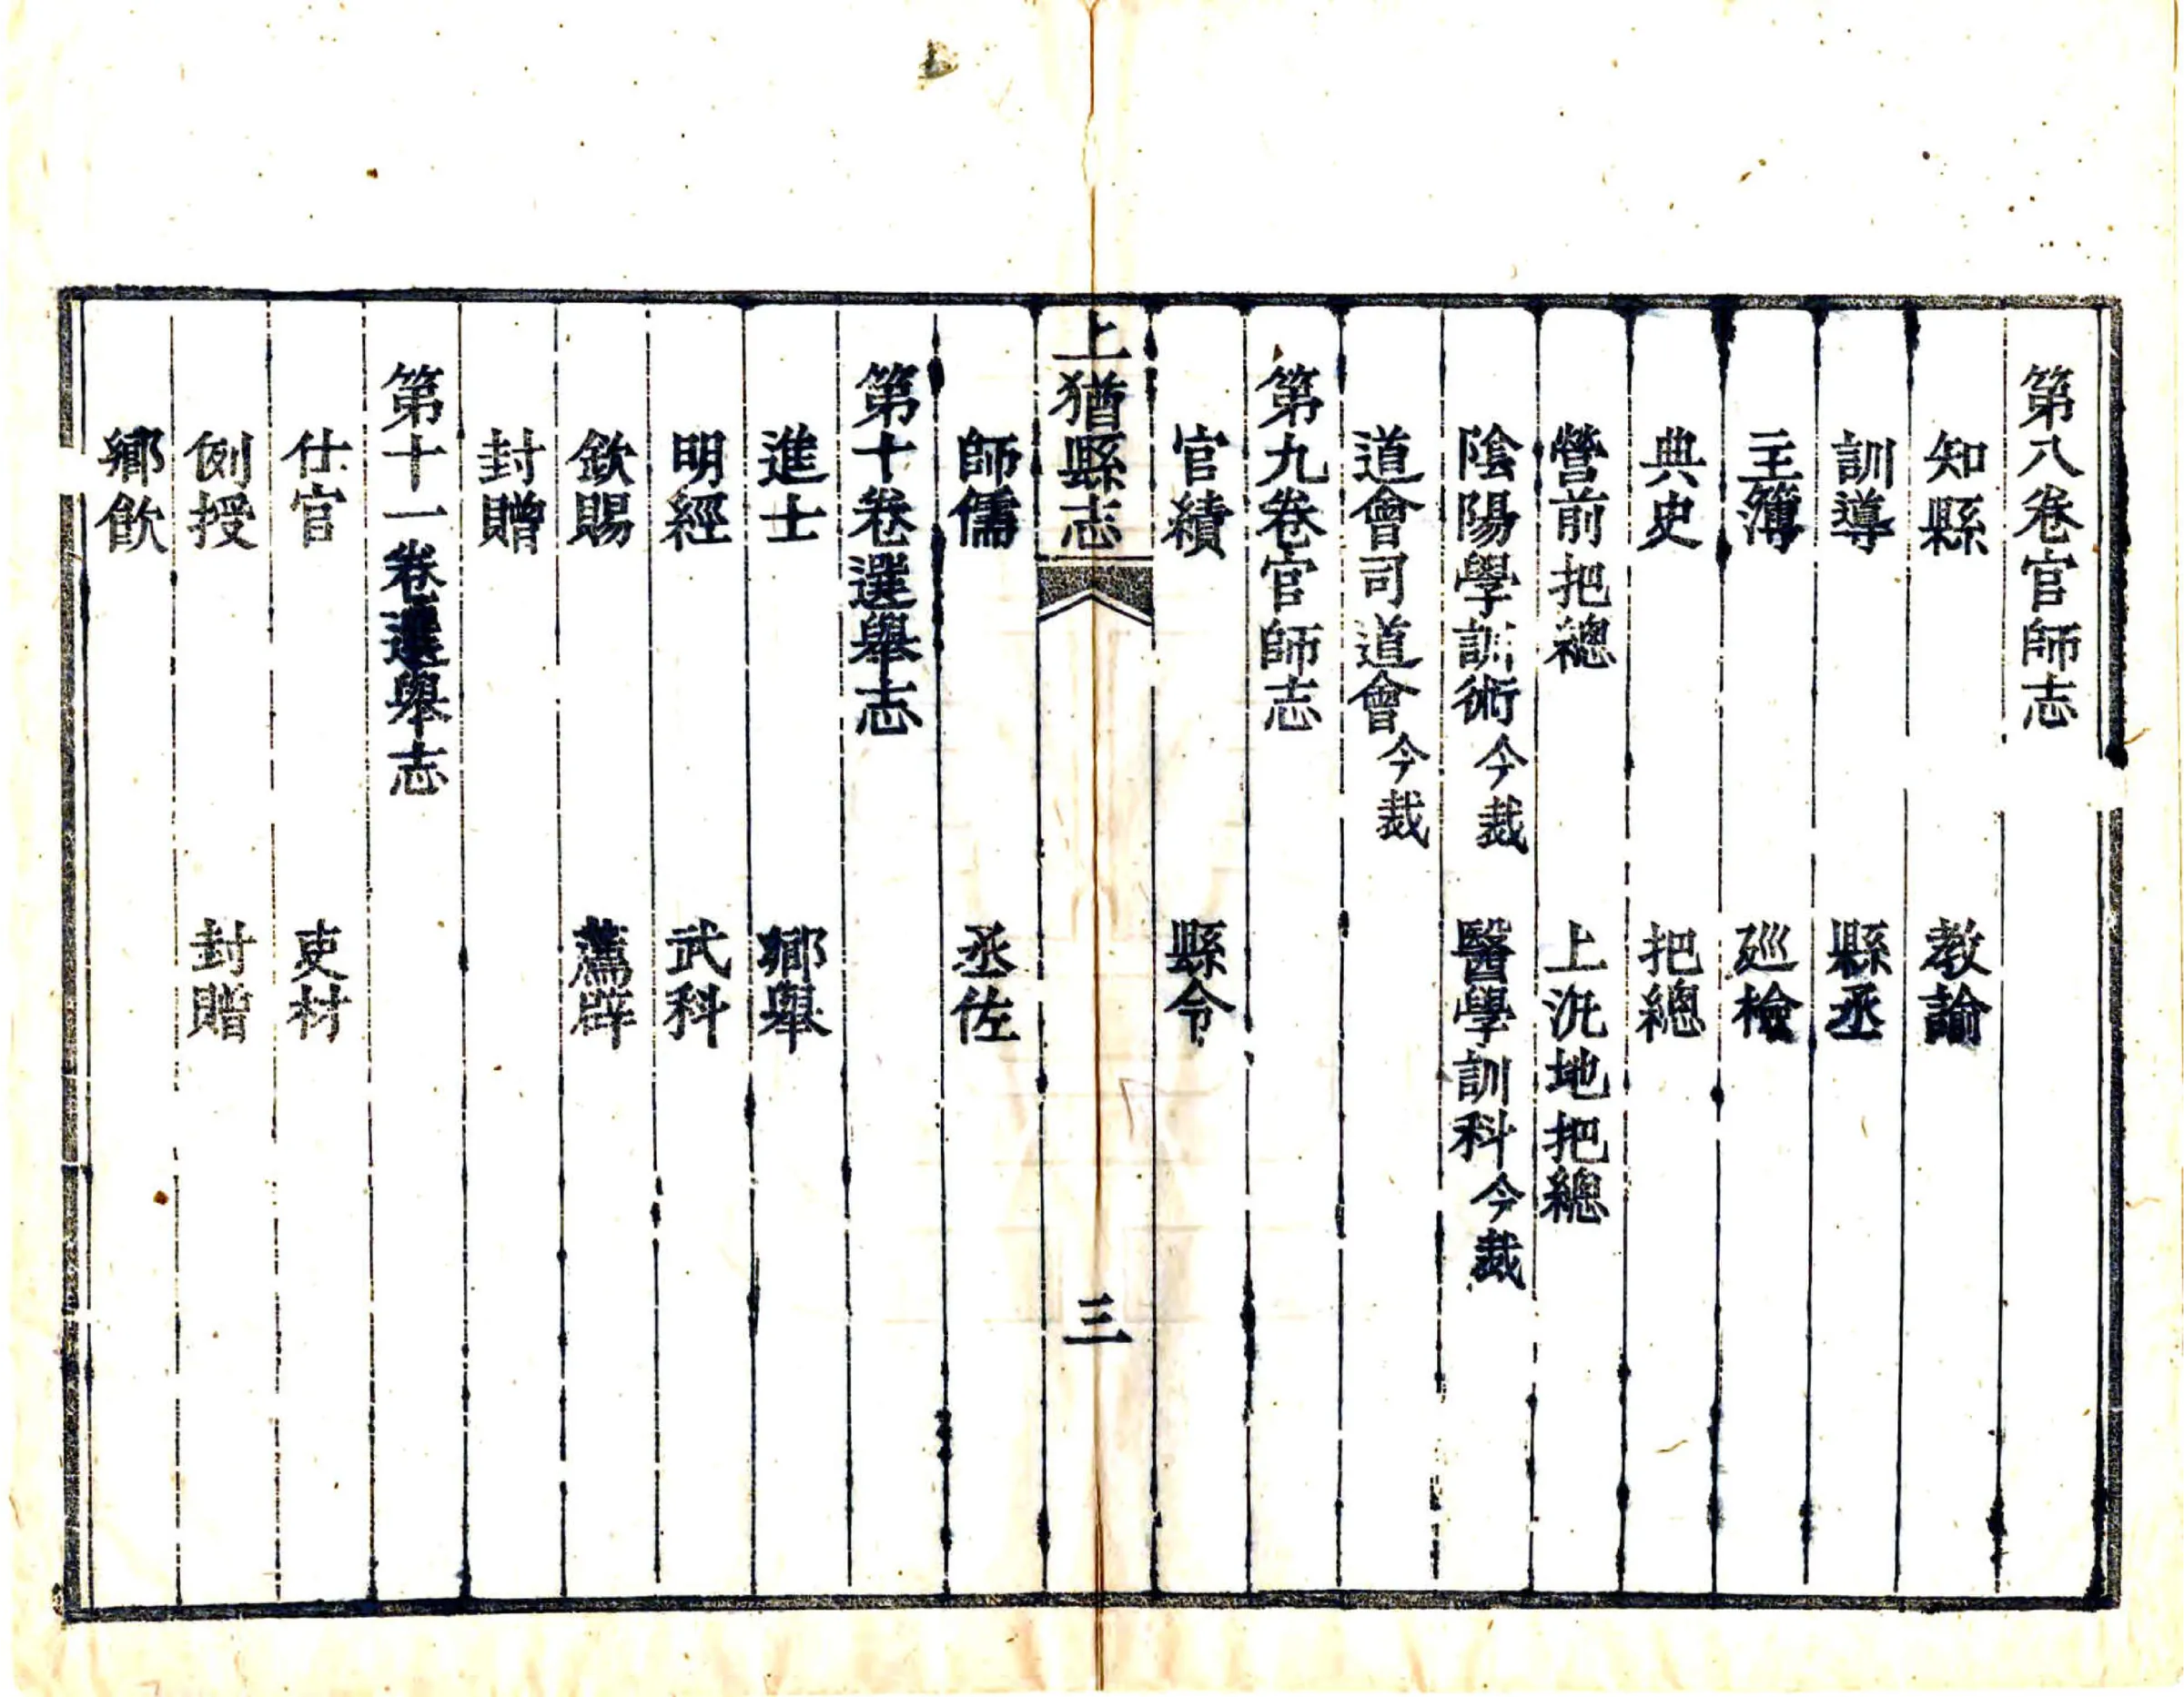 第八卷官師志
知縣　教諭
訓導　縣丞
主簿　巡檢
典史　把總
營前把總　上汛地把總
陰陽學訓術今裁　醫學訓科今裁
道會司道會今裁
第九卷官師志
官績　縣令
上猶縣志　三
師儒　丞佐
第十卷選舉志
進士　鄉舉
明經　武科
欽賜　薦辟
封贈
第十一卷選舉志
仕宦　吏材
例授　封贈
鄉飲